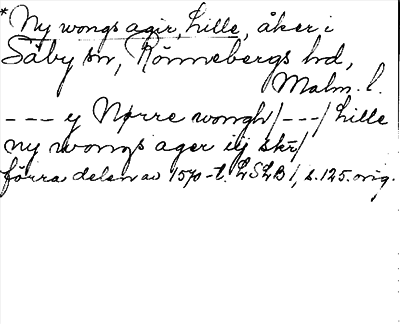 *Ny wongs agir, Lille, åker i
Säby sn, Rönnebergs hd,
Malm. l.
--- y Nørre wongh/---/Lille
ny wongs ager iij skr/
förra delen av 1570-t. LSLB 1, s. 125. orig.